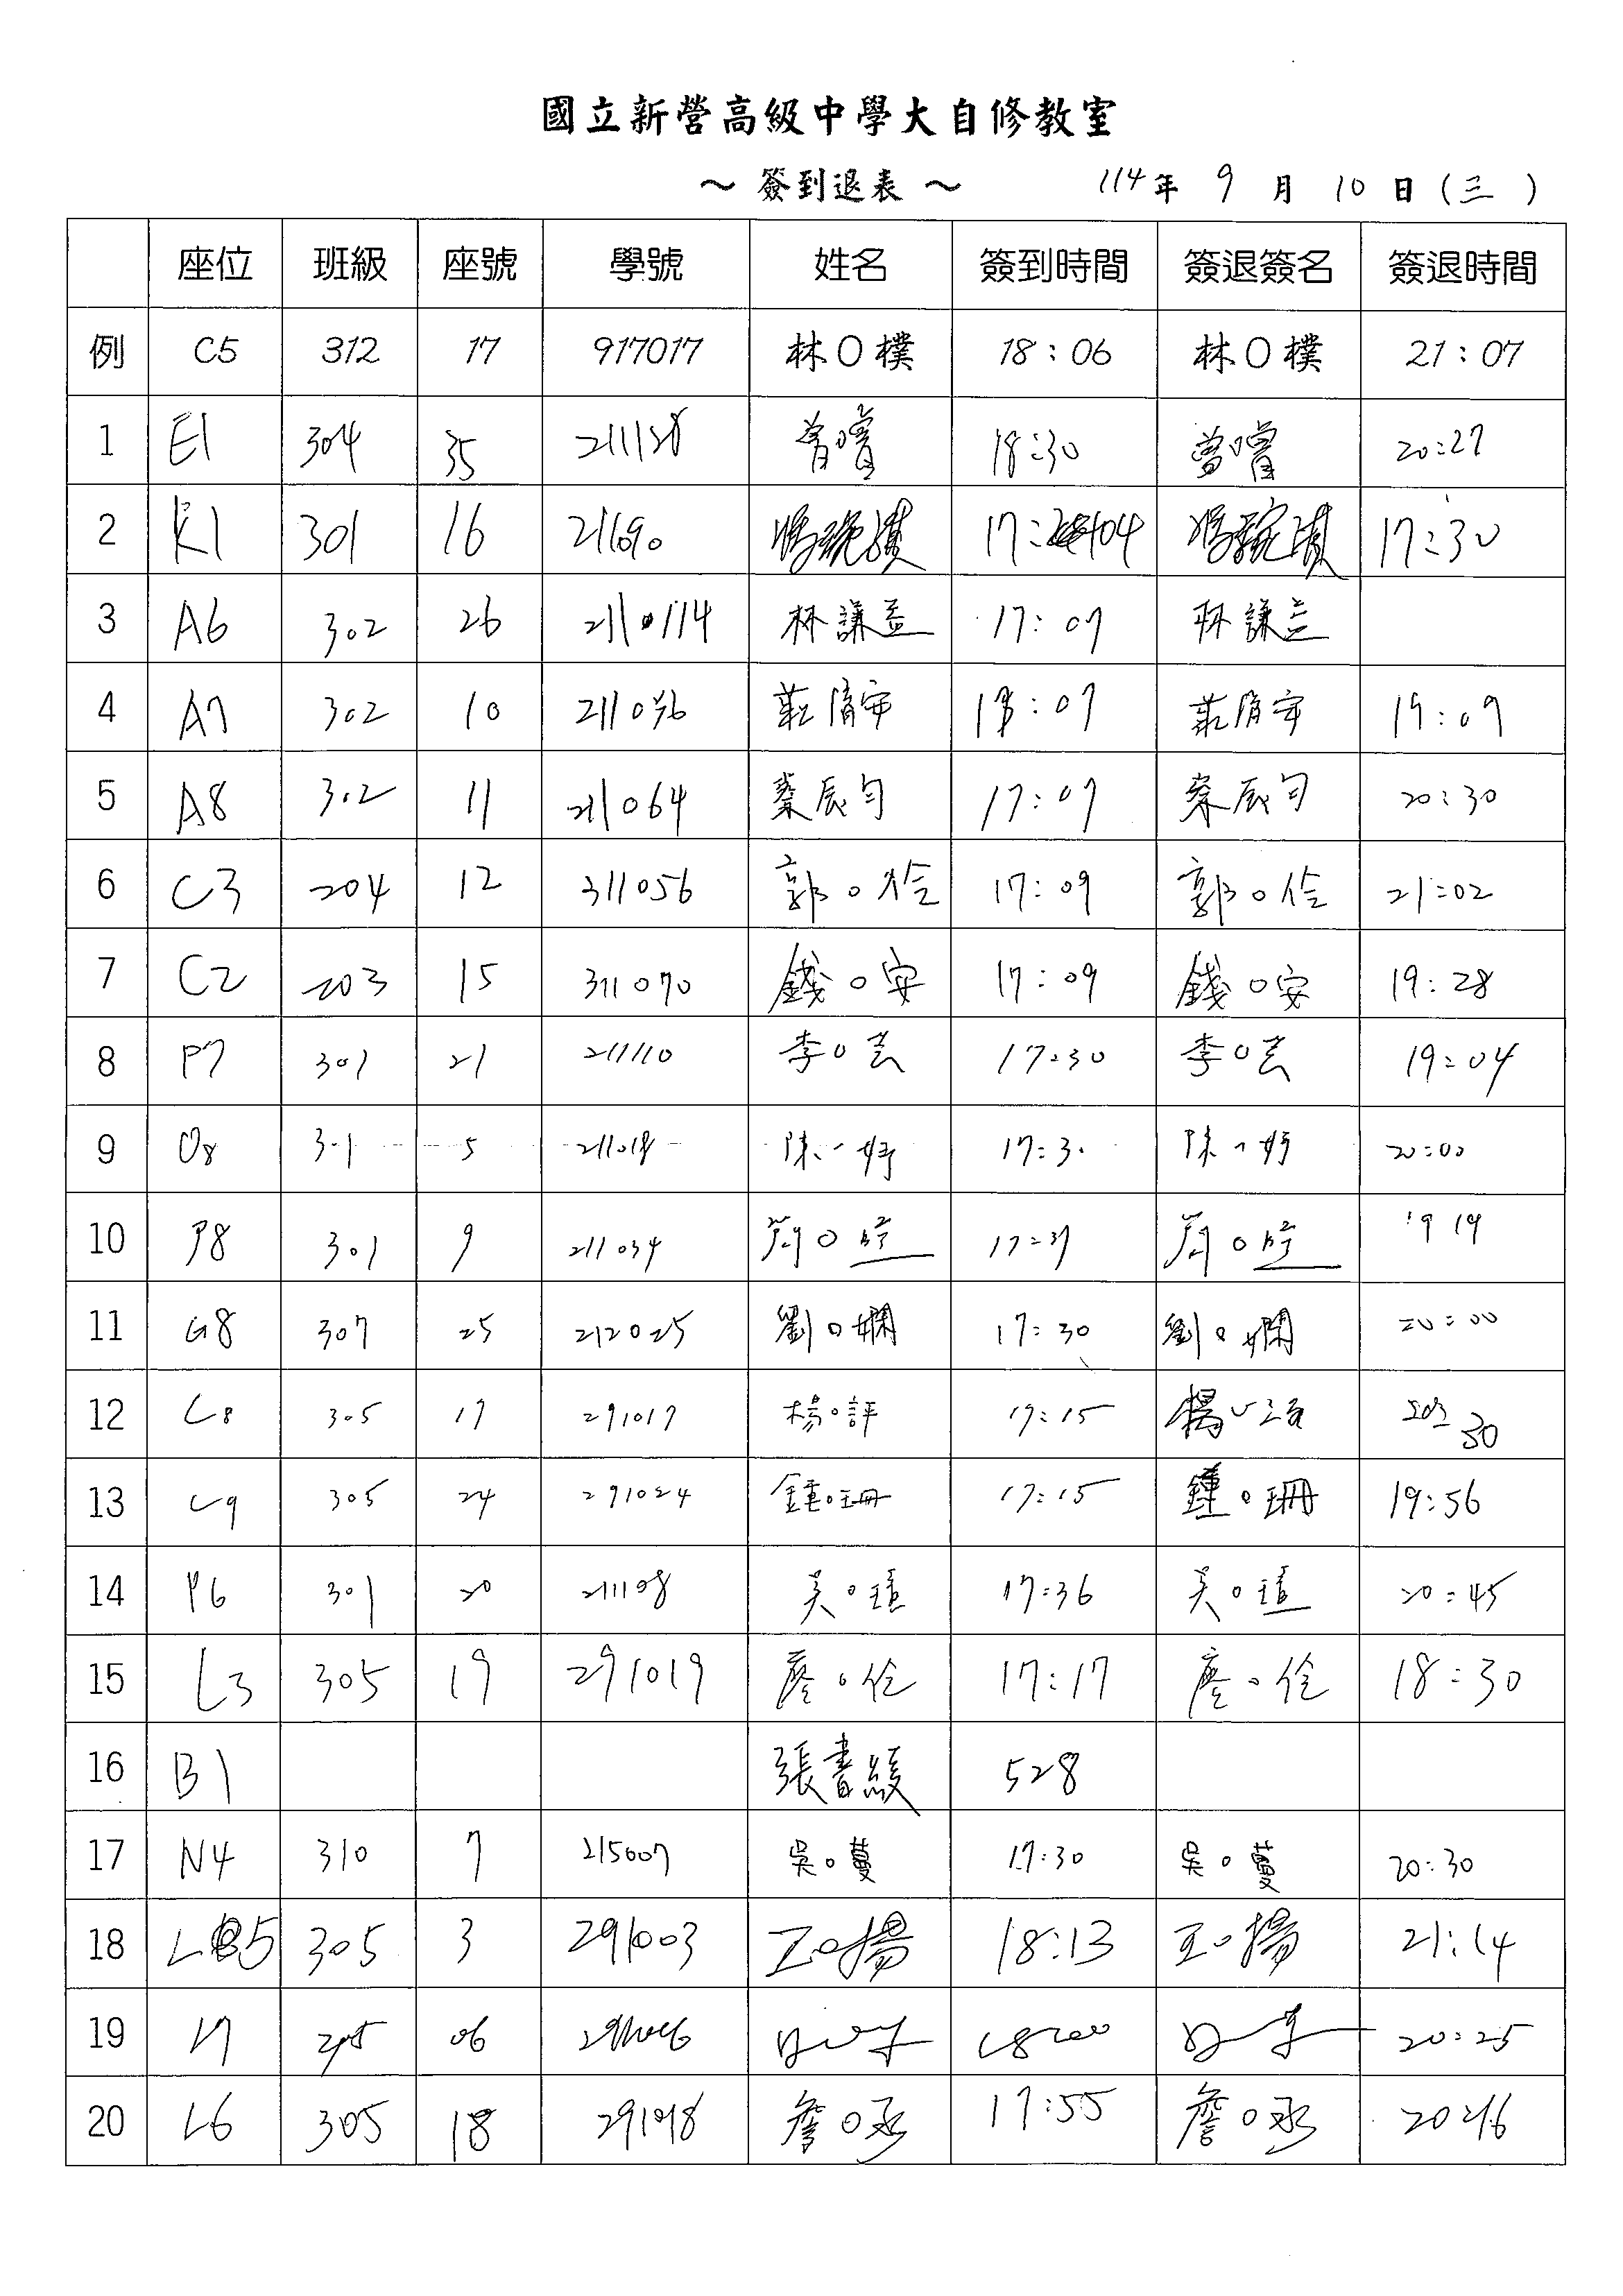 國立新營高級中學大自修教室
～ 簽到退表 ～ 114年 9 月 10 日 (三)
座位 班級 座號 學號 姓名 簽到時間 簽退簽名 簽退時間
例 C5 312 17 917017 林〇樸 18:06 林〇樸 21:07
1 E1 304 35 211128 18:30 20:27
2 K1 301 16 17: 04 17:30
3 A6 302 26 林謙益 17:07 林謙益
4 A7 302 10 :07 19:09
5 A8 302 11 211064 蔡辰勻 17:07 蔡辰勻 20:30
6 C3 204 12 311056 郭〇伶 17:09 郭〇伶 21:02
7 C2 203 15 311070 錢〇安 17:09 錢〇安 19:28
8 P7 301 21 211110 李〇芸 17:30 李〇芸 19:04
9 O8 301 5 17:30 20:00
10 P8 301 9 211034 17:37 19 19
11 G8 307 25 212025 劉〇嫻 17:30 劉〇嫻 20:00
12 L8 305 17 291017 楊〇評 17:15 30
13 L9 305 24 291024 鍾〇珊 17:15 鍾〇珊 19:56
14 P6 301 20 211108 吳〇瑄 17:36 吳〇瑄 20:45
15 L3 305 19 291019 廖〇佺 17:17 廖〇佺 18:30
16 B1 張書綾 528
17 N4 310 7 215007 吳〇蔓 17:30 吳〇蔓 20:30
18 305 3 291003 王〇揚 18:13 王〇揚 21:14
19 L7 305 06 20:25
20 L6 305 18 291018 詹〇丞 17:55 詹〇丞 20:16